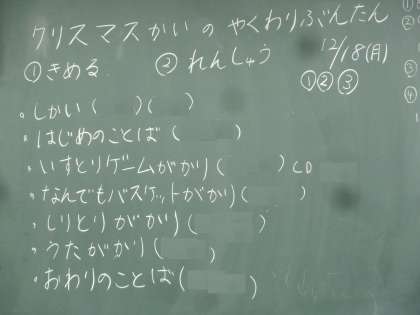 クリスマスかいの やくわりぶんたん
①きめる ②れんしゅう 12/18(月)
①②③
・しかい( )( )
・はじめのことば( )
・いすとりゲームがかり( )CD
・なんでもバスケットがかり( )
・しりとりがかり( )
・うたがかり( )
・おわりのことば( )
①
②
③
④